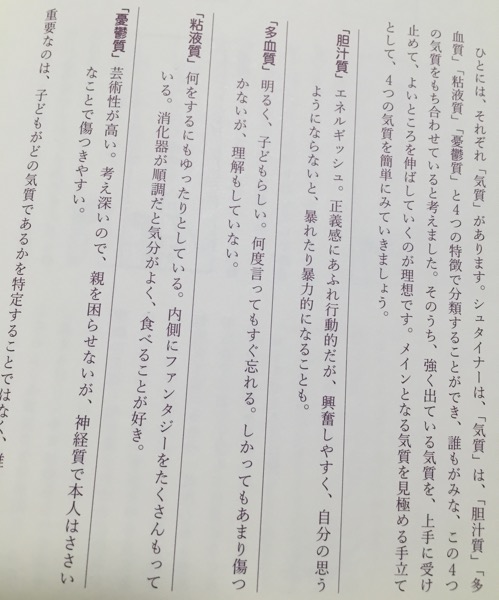 ひとには、それぞれ「気質」があります。シュタイナーは、「気質」は、「胆汁質」「多
血質」「粘液質」「憂鬱質」と4つの特徴で分類することができ、誰もがみな、この4つ
の気質をもち合わせていると考えました。そのうち、強く出ている気質を、上手に受け
止めて、よいところを伸ばしていくのが理想です。メインとなる気質を見極める手立て
として、4つの気質を簡単にみていきましょう。
「胆汁質」エネルギッシュ。正義感にあふれ行動的だが、興奮しやすく、自分の思う
ようにならないと、暴れたり暴力的になることも。
「多血質」明るく、子どもらしい。何度言ってもすぐ忘れる。しかってもあまり傷つ
かないが、理解もしていない。
「粘液質」何をするにもゆったりとしている。内側にファンタジーをたくさんもって
いる。消化器が順調だと気分がよく、食べることが好き。
「憂鬱質」芸術性が高い。考え深いので、親を困らせないが、神経質で本人はささい
なことで傷つきやすい。
重要なのは、子どもがどの気質であるかを特定することではなく、